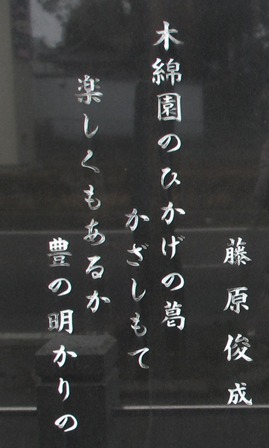 藤原俊成
木綿園のひかげの葛
かざしもて
楽しくもあるか
豊の明かりの